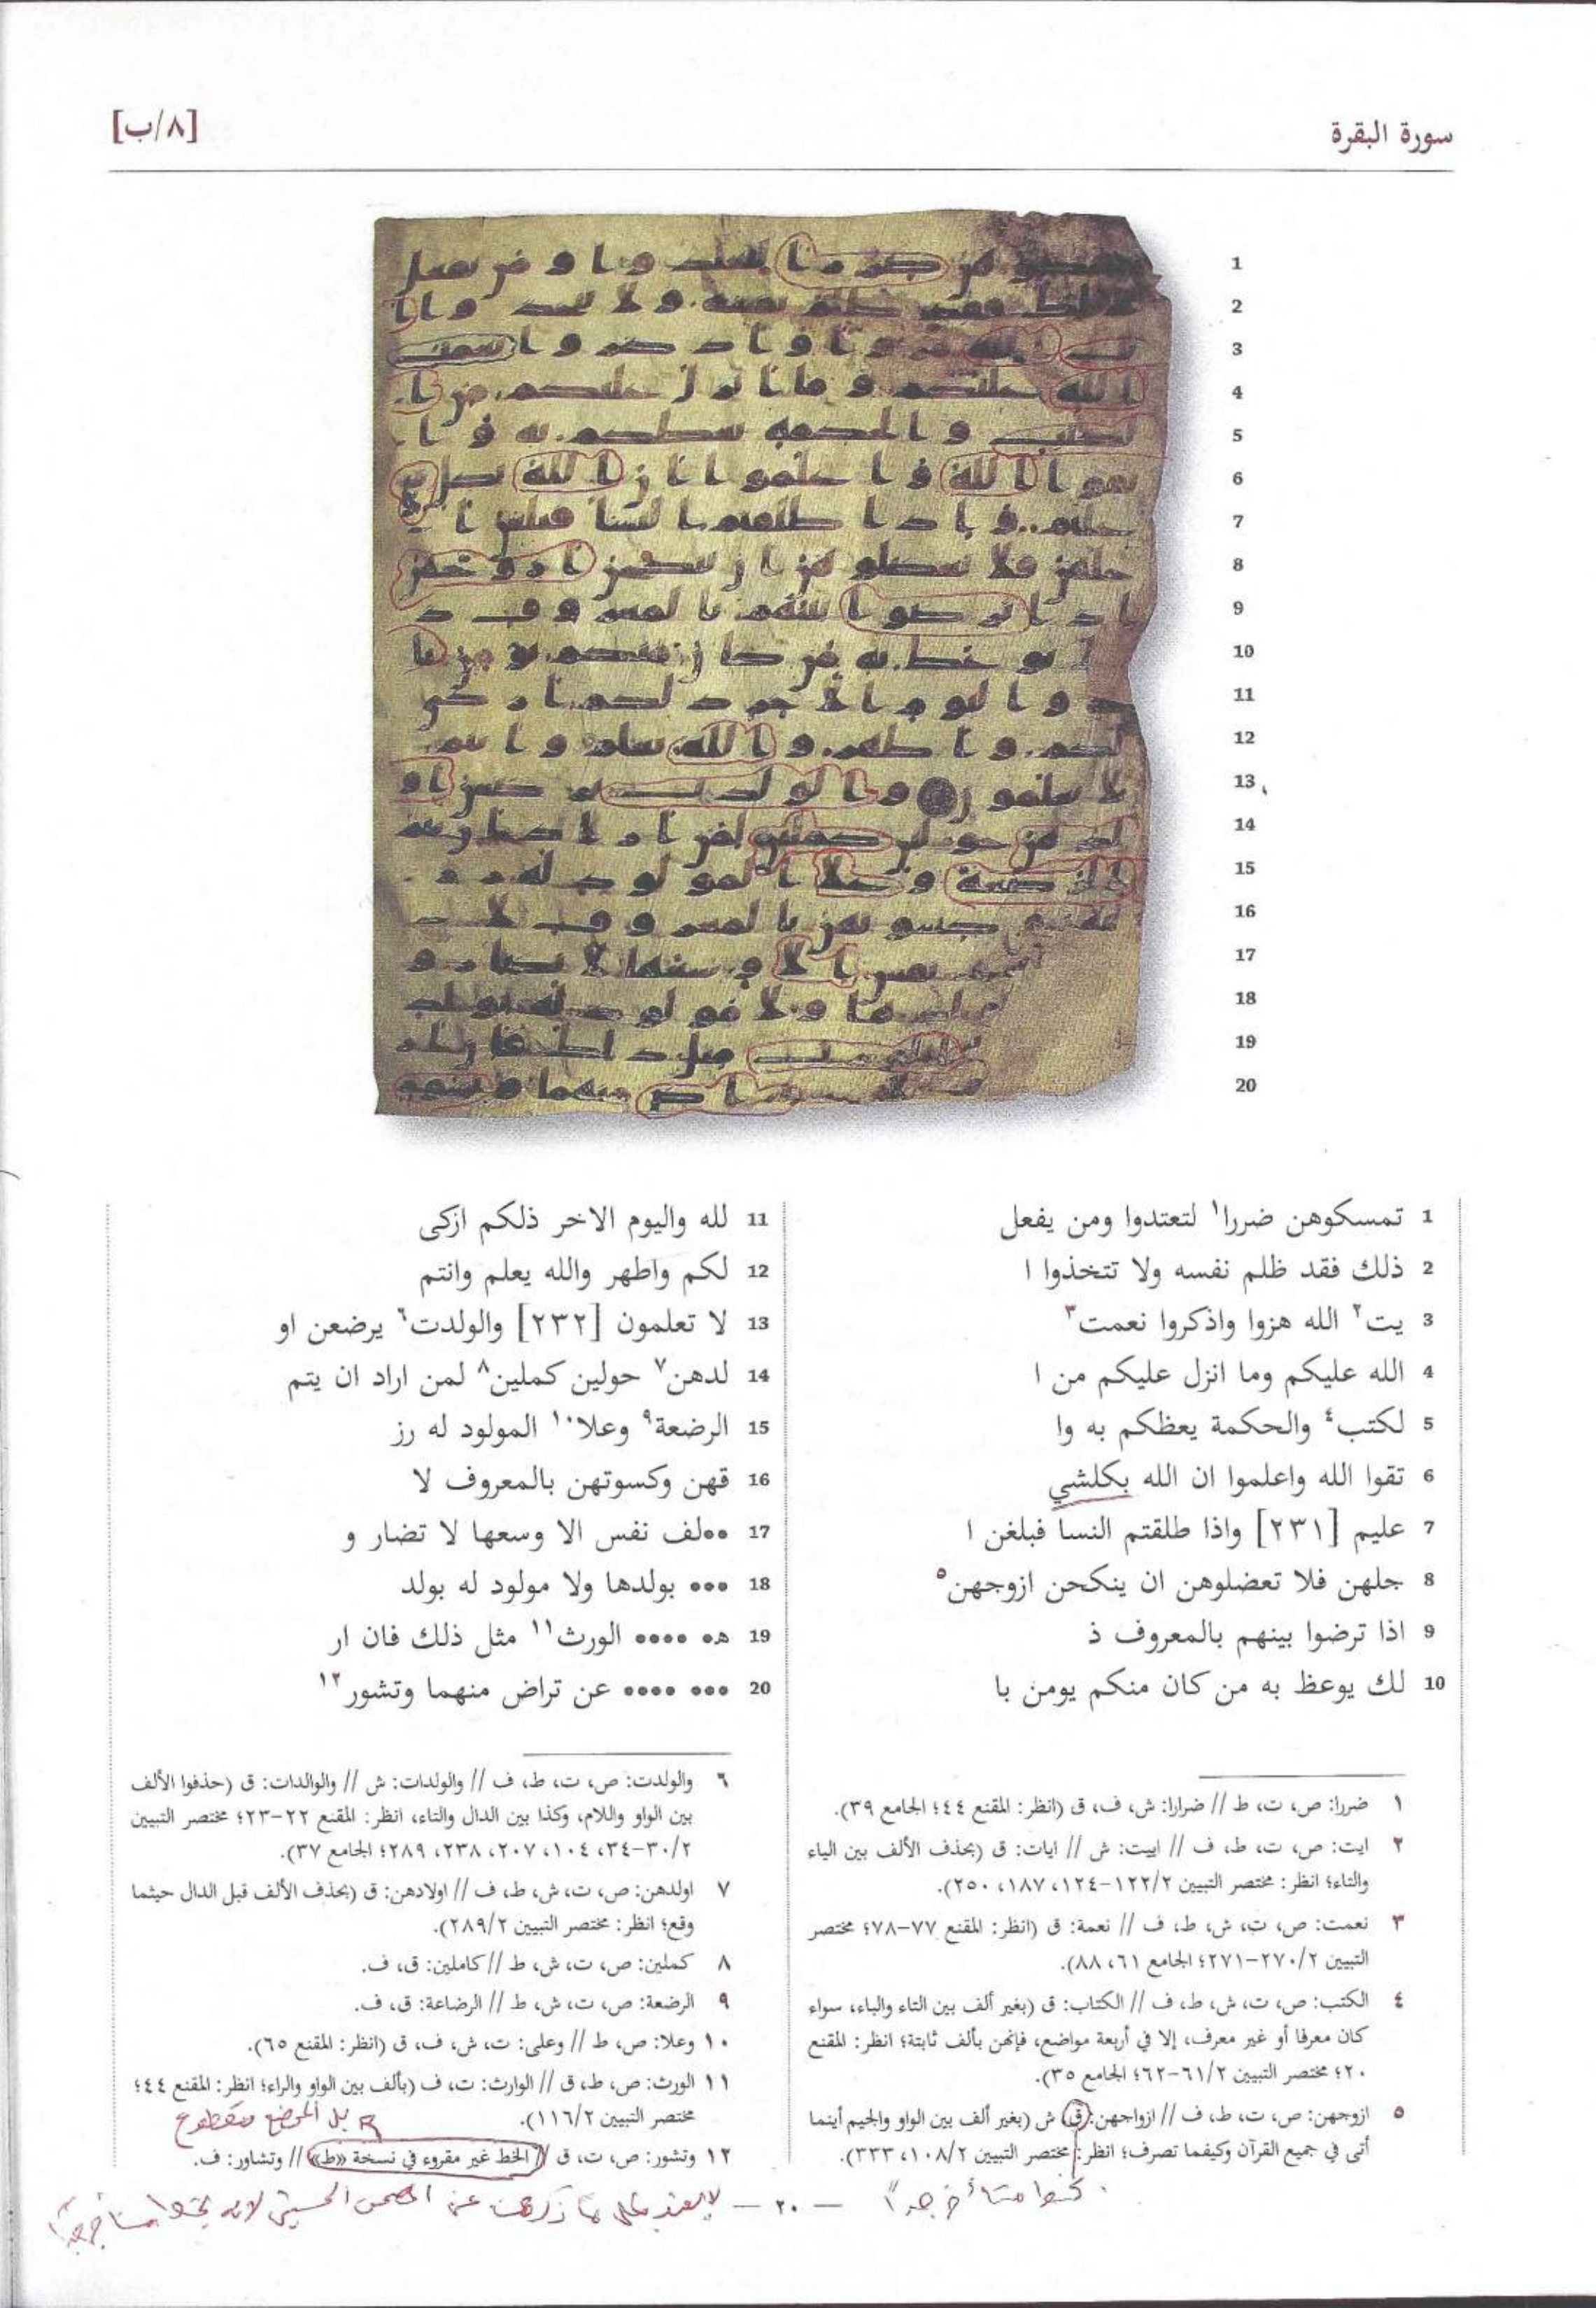 سورة البقرة
[٨/ب]
1
2
3
4
5
6
7
8
9
10
11
12
13
14
15
16
17
18
19
20
1 تمسكوهن ضررا١ لتعتدوا ومن يفعل
2 ذلك فقد ظلم نفسه ولا تتخذوا ا
3 يت٢ الله هزوا واذكروا نعمت٣
4 الله عليكم وما انزل عليكم من ا
5 لكتب٤ والحكمة يعظكم به وا
6 تقوا الله واعلموا ان الله بكلشي
7 عليم [٢٣١] واذا طلقتم النسا فبلغن ا
8 جلهن فلا تعضلوهن ان ينكحن ازوجهن٥
9 اذا ترضوا بينهم بالمعروف ذ
10 لك يوعظ به من كان منكم يومن با
11 لله واليوم الاخر ذلكم ازكى
12 لكم واطهر والله يعلم وانتم
13 لا تعلمون [٢٣٢] والولدت٦ يرضعن او
14 لدهن٧ حولين كملين٨ لمن اراد ان يتم
15 الرضعة٩ وعلا١٠ المولود له رز
16 قهن وكسوتهن بالمعروف لا
17 ••لف نفس الا وسعها لا تضار و
18 ••• بولدها ولا مولود له بولد
19 ه• •••• الورث١١ مثل ذلك فان ار
20 ••• •••• عن تراض منهما وتشور١٢
١ ضررا: ص، ت، ط // ضرارا: ش، ف، ق (انظر: المقنع ٤٤؛ الجامع ٣٩).
٢ ايت: ص، ت، ط، ف // اييت: ش // ايات: ق (بحذف الألف بين الياء
والتاء؛ انظر: مختصر التبيين ١٢٢/٢-١٢٤، ١٨٧، ٢٥٠).
٣ نعمت: ص، ت، ش، ط، ف // نعمة: ق (انظر: المقنع ٧٧-٧٨؛ مختصر
التبيين ٢٧٠/٢-٢٧١؛ الجامع ٦١، ٨٨).
٤ الكتب: ص، ت، ش، ط، ف // الكتاب: ق (بغير ألف بين التاء والباء، سواء
كان معرفا أو غير معرف، إلا في أربعة مواضع، فإنهن بألف ثابتة؛ انظر: المقنع
٢٠؛ مختصر التبيين ٦١/٢-٦٢؛ الجامع ٣٥).
٥ ازوجهن: ص، ت، ط، ف // ازواجهن: ق، ش (بغير ألف بين الواو والجيم أينما
أتى في جميع القرآن وكيفما تصرف؛ انظر: مختصر التبيين ١٠٨/٢، ٣٣٣).
٦ والولدت: ص، ت، ط، ف // والولدات: ش // والوالدات: ق (حذفوا الألف
بين الواو واللام، وكذا بين الدال والتاء، انظر: المقنع ٢٢-٢٣؛ مختصر التبيين
٣٠/٢-٣٤، ١٠٤، ٢٠٧، ٢٣٨، ٢٨٩؛ الجامع ٣٧).
٧ اولدهن: ص، ت، ش، ط، ف // اولادهن: ق (بحذف الألف قبل الدال حيثما
وقع؛ انظر: مختصر التبيين ٢٨٩/٢).
٨ كملين: ص، ت، ش، ط // كاملين: ق، ف.
٩ الرضعة: ص، ت، ش، ط // الرضاعة: ق، ف.
١٠ وعلا: ص، ط // وعلى: ت، ش، ف، ق (انظر: المقنع ٦٥).
١١ الورث: ص، ط، ق // الوارث: ت، ف (بألف بين الواو والراء؛ انظر: المقنع ٤٤؛
مختصر التبيين ١١٦/٢).
بل الموضع مقطوع
١٢ وتشور: ص، ت، ق // الخط غير مقروء في نسخة «ط» // وتشاور: ف.
— ٢٠ —